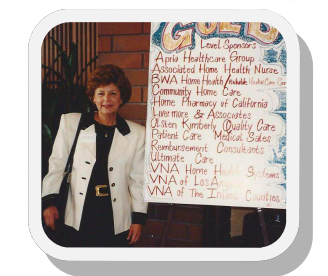 GOLD
Level Sponsors
Apria Healthcare Group
Associated Home Health Nurse
BWA Home Health/
Community Home Care
Home Pharmacy of California
Livermore & Associates
Olsten Kimberly Quality Care
Patient Care Medical Sales
Reimbursement Consultants
Ultimate Care
VNA Home Health Systems
VNA of Los
VNA of The Counties